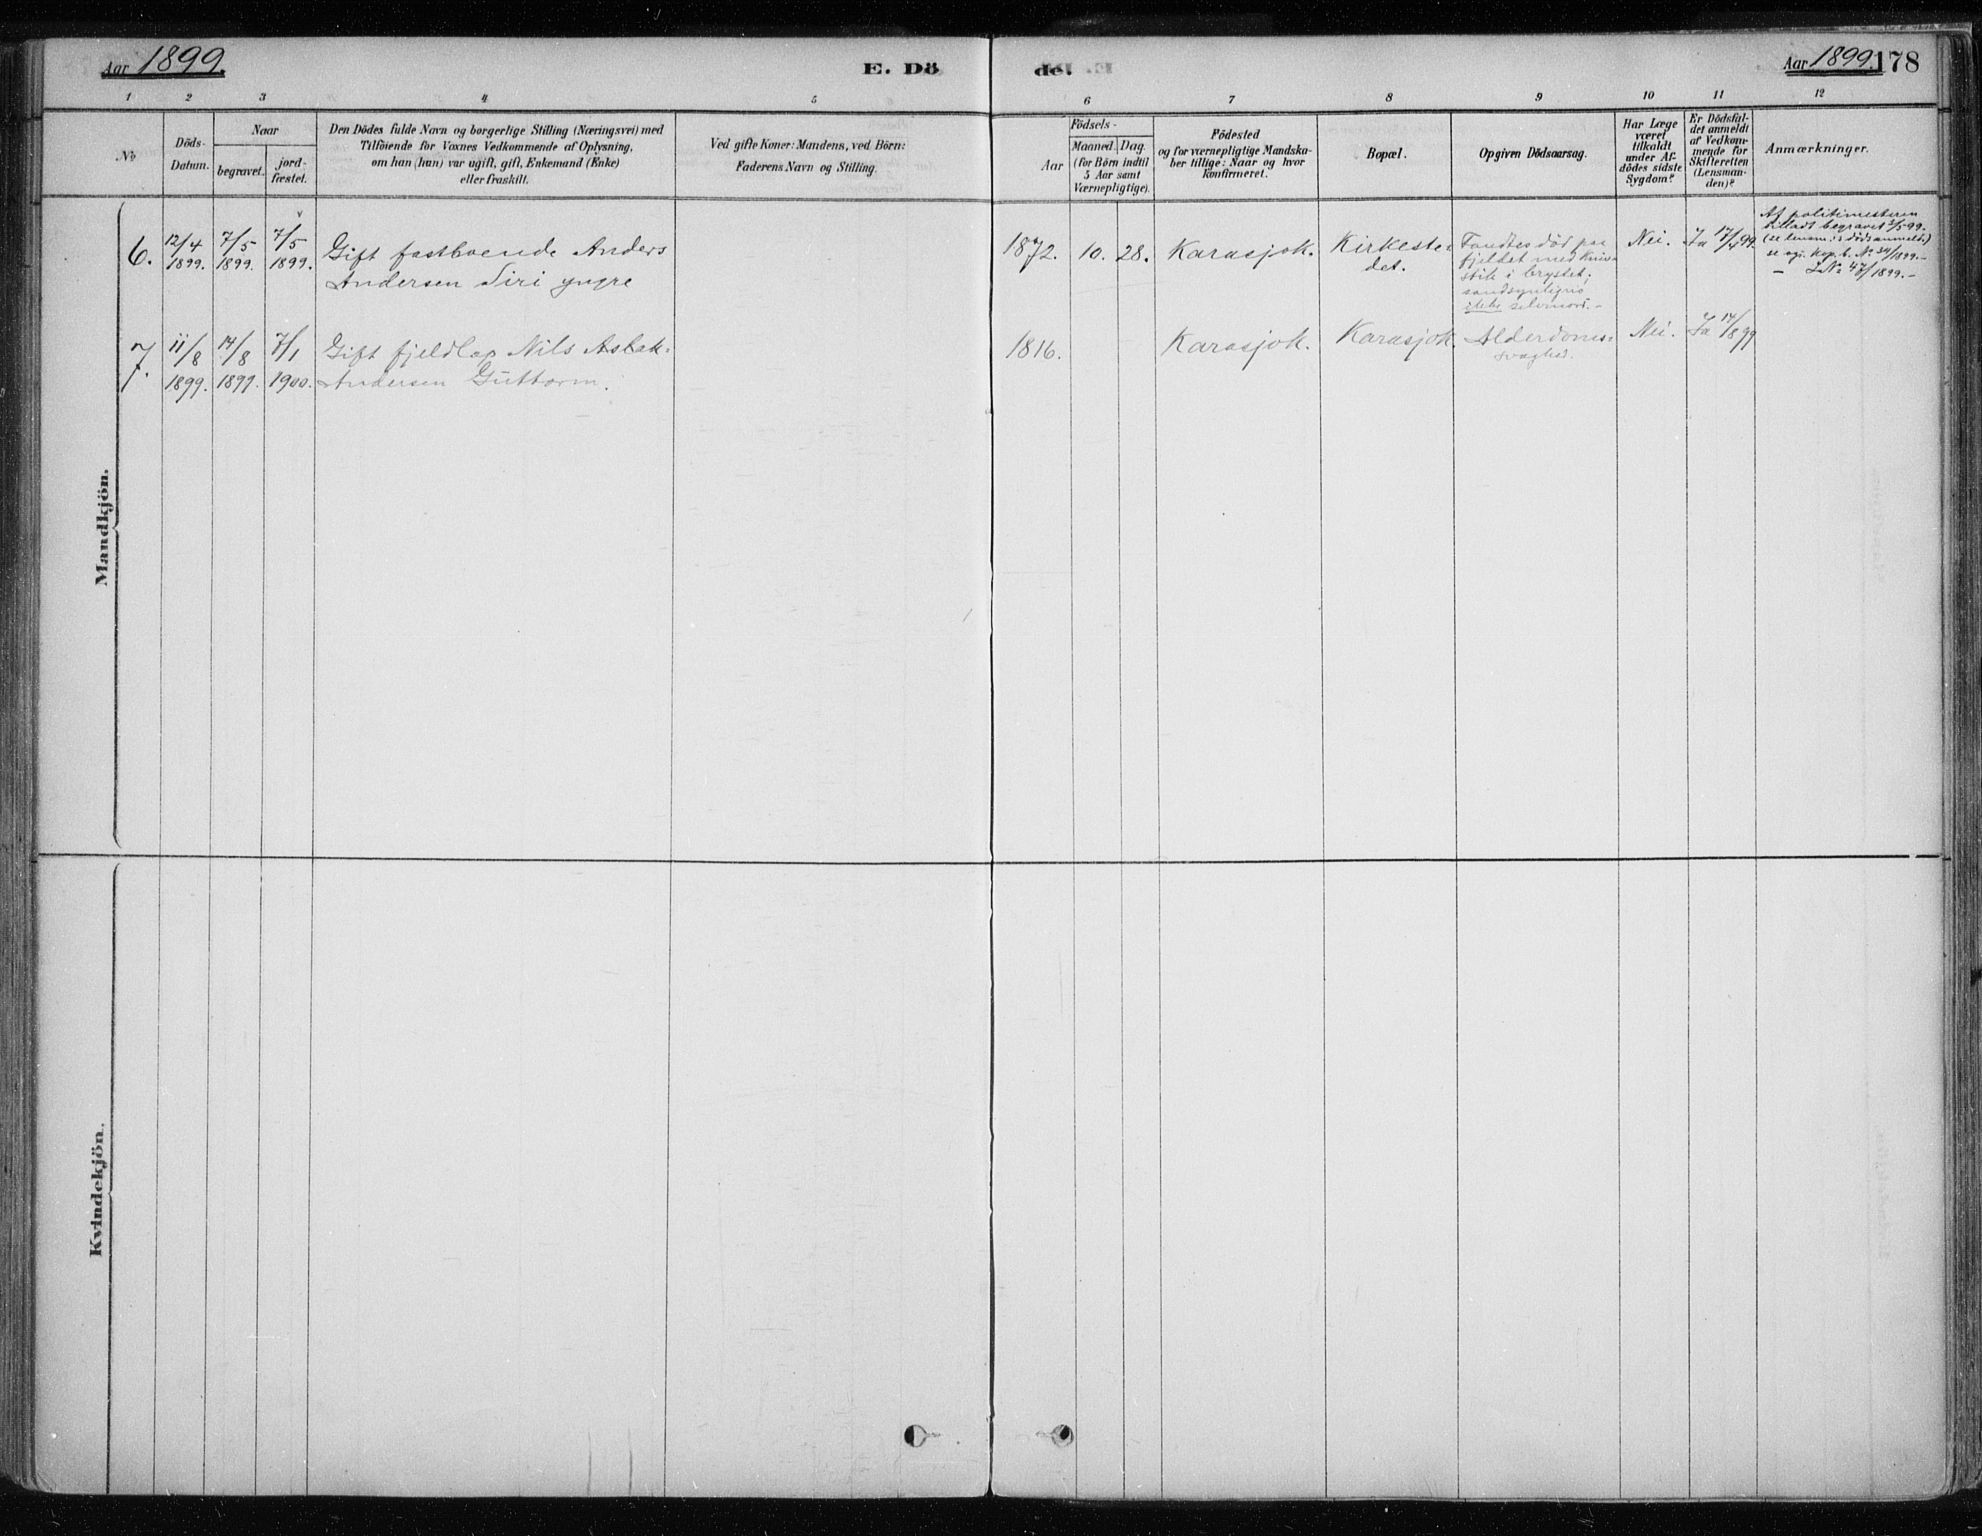 Aar 1899.
E. Dö
de.
Aar 1899. 178
1 2 3 4 5 6 7 8 9 10 11 12
No
Döds-
Datum.
Naar
begravet.
jord-
fæstet.
Den Dödes fulde Navn og borgerlige Stilling (Næringsvei) med
Tilföiende for Voxnes Vedkommende af Oplysning,
om han (hun) var ugift, gift, Enkemand (Enke)
eller fraskilt.
Ved gifte Koner: Mandens, ved Börn:
Faderens Navn og Stilling.
Födsels-
Aar
Maaned.
Dag.
(for Börn indtil
5 Aar samt
Værnepligtige).
Födested
og for værnepligtige Mandska-
ber tillige: Naar og hvor
konfirmeret.
Bopæl.
Opgiven Dödsaarsag.
Har Læge
været
tilkaldt
under Af-
dödes sidste
Sygdom?
Er Dödsfal-
det anmeldt
af Vedkom-
mende for
Skifteretten
(Lensman-
den)?
Anmærkninger.
Mandkjön.
6.
12/4
1899.
7/5
1899.
7/5
1899.
Gift fastboende Anders
Andersen Siri yngre
1872.
10.
28.
Karasjok.
Kirkeste-
det.
Fandtes död paa
fjeldet med kniv-
stik i brystet;
sandsynligvis
ikke selvmord.-
Nei.
Ja 17/4 99.
Af politimesteren
tilladt begravet 3/5-99.
(se lensm:s dödsanmeld.)
se ogs. Kop.b. No 34/1899.-
- J. No 47/1899.-
7.
11/8
1899.
14/8
1899.
7/1
1900.
Gift fjeldlap Nils Aslak-
Andersen Guttorm.
1816.
Karasjok.
Karasjok.
Alderdoms-
svaghed.
Nei.
Ja 14/8 99
Kvindekjön.